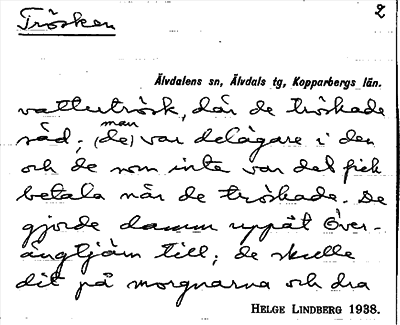 Trösken
2
Älvdalens sn, Älvdals tg, Kopparbergs län.
vattutrösk, där de tröskade
säd; (de) man var delägare i den
och de som inte var det fick
betala när de tröskade. De
gjorde damm uppåt Över-
ängtjärn till; de skulle
dit på morgnarna och dra
HELGE LINDBERG 1938.